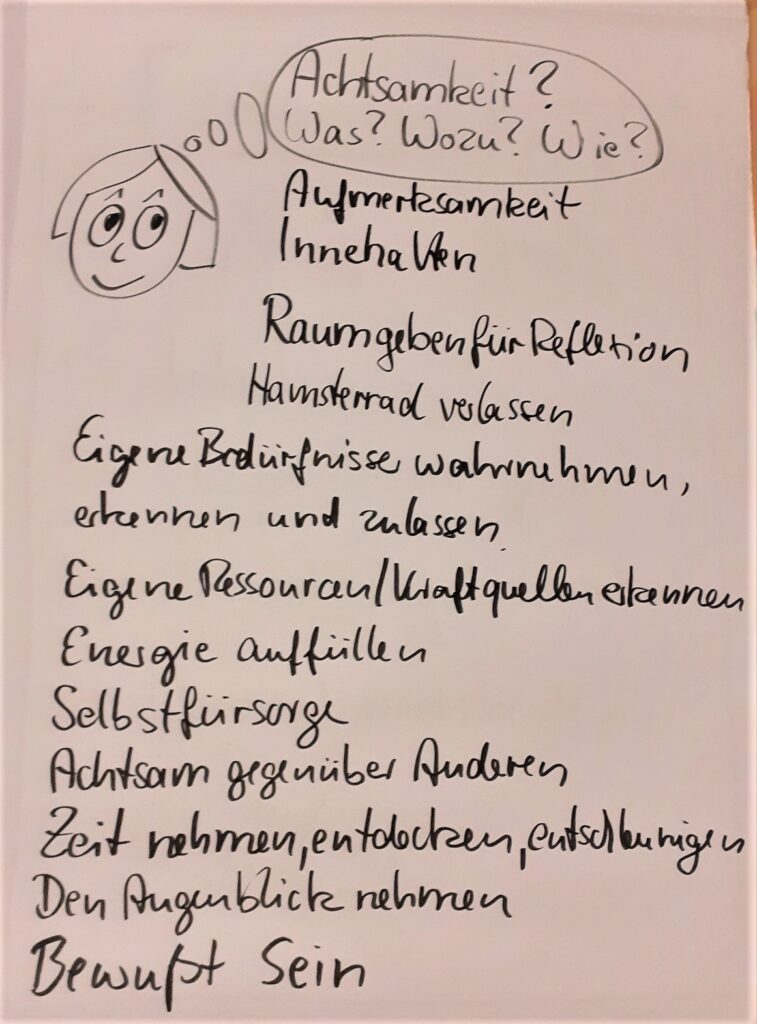 Achtsamkeit?
Was? Wozu? Wie?
Aufmerksamkeit
Innehalten
Raum geben für Refletion
Hamsterrad verlassen
Eigene Bedürfnisse wahrnehmen,
erkennen und zulassen.
Eigene Ressourcen/Kraftquellen erkennen
Energie auffüllen
Selbstfürsorge
Achtsam gegenüber Anderen
Zeit nehmen, entdecken, entschleunigen
Den Augenblick nehmen
Bewußt Sein